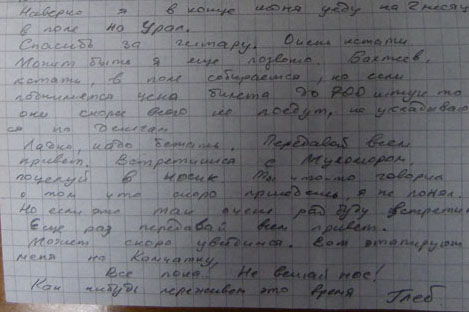 Наверно я в конце июня уеду на 2 месяц
в поле на Урал.
Спасибо за гитару. Очень кстати.
Может быть я еще позвоню.
кстати, в поле собирается, но если
поднимется цена билета до 800 штук то
они скорее всего не поедут, не укладываю
ся по деньгам.
Ладно, надо бежать. Передавай всем
привет. Встретишься с Мухомором,
поцелуй в носик. Ты что-то говорил
о том что скоро приедешь, я не понял.
Но если это так очень рад буду встрети
Еще раз передавай всем привет.
Может скоро увидимся. Если этапируют
меня на Камчатку.
Все пока! Не вешай нос!
Как нибудь переживем это время Глеб